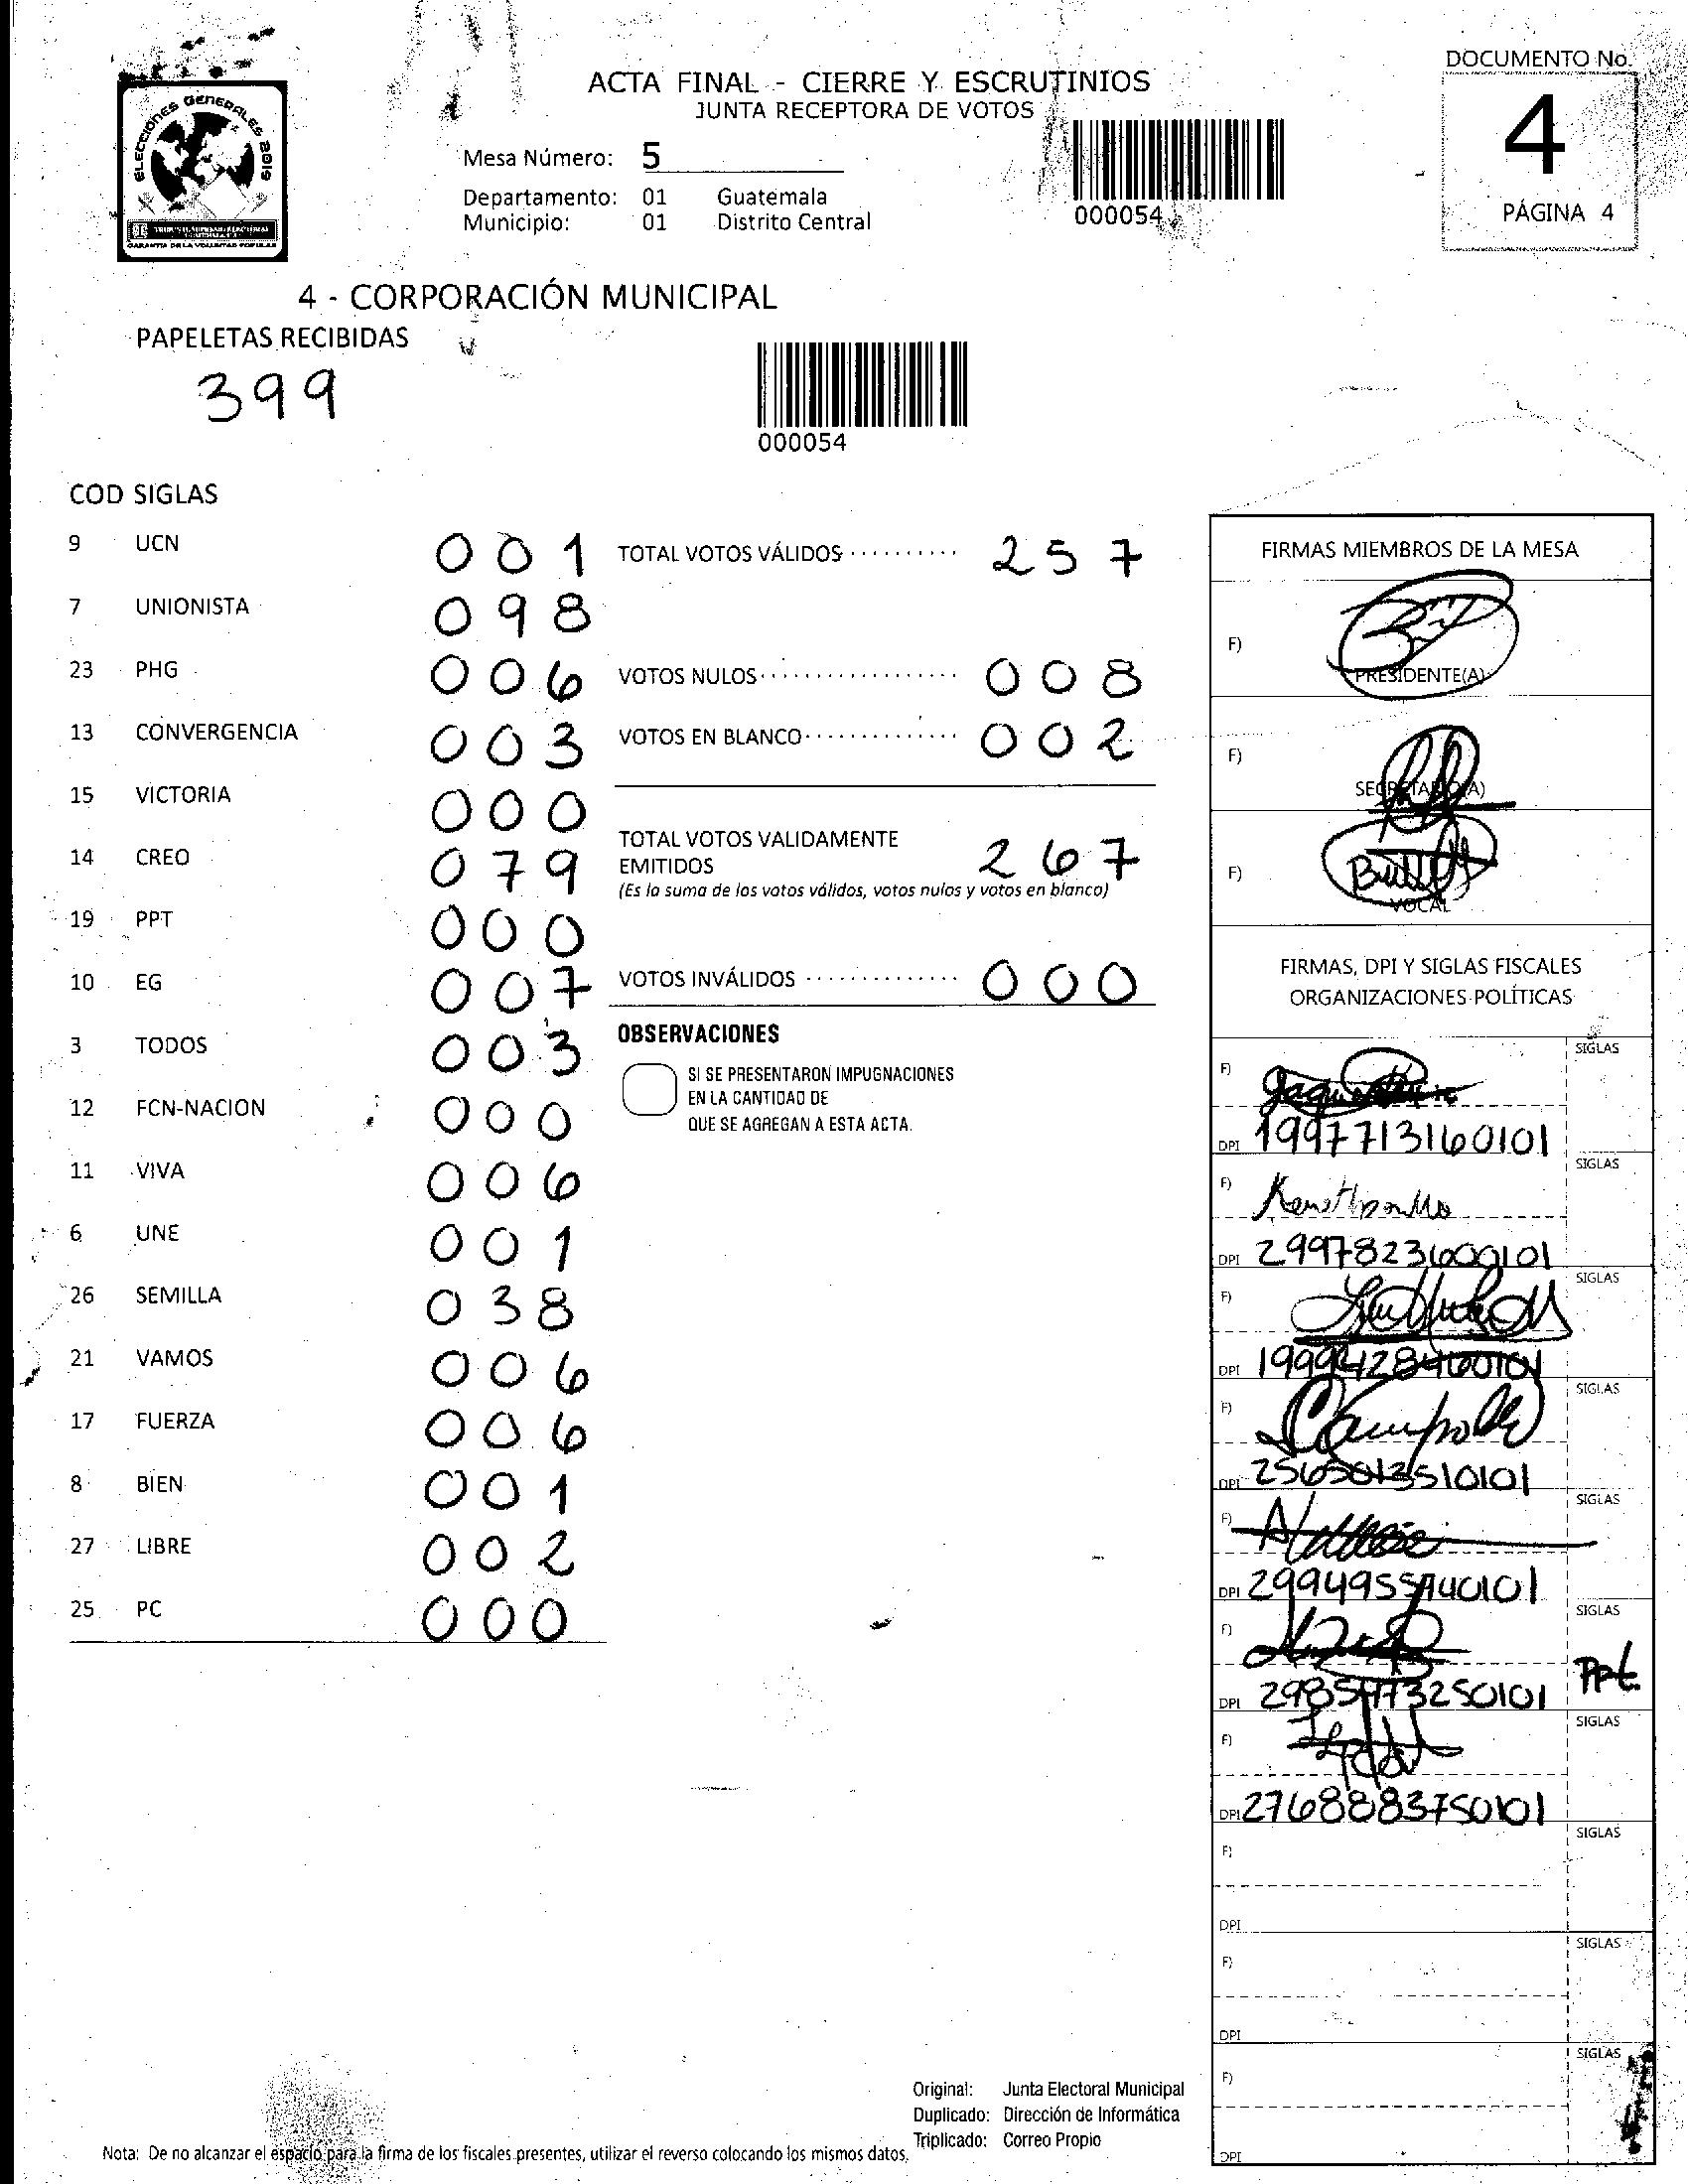 DOCUMENTO No.
4
PÁGINA 4
ELECCIONES GENERALES 2019
TRIBUNAL SUPREMO ELECTORAL
GARANTIA DE LA VOLUNTAD POPULAR
ACTA FINAL - CIERRE Y ESCRUTINIOS
JUNTA RECEPTORA DE VOTOS
Mesa Número: 5
Departamento: 01 Guatemala
Municipio: 01 Distrito Central
000054
4 - CORPORACIÓN MUNICIPAL
PAPELETAS RECIBIDAS
399
000054
COD SIGLAS
9 UCN 001
7 UNIONISTA 098
23 PHG 006
13 CONVERGENCIA 003
15 VICTORIA 000
14 CREO 079
19 PPT 000
10 EG 007
3 TODOS 003
12 FCN-NACION 000
11 VIVA 006
6 UNE 001
26 SEMILLA 038
21 VAMOS 006
17 FUERZA 006
8 BIEN 001
27 LIBRE 002
25 PC 000
TOTAL VOTOS VÁLIDOS .......... 257
VOTOS NULOS.................. 008
VOTOS EN BLANCO.............. 002
TOTAL VOTOS VALIDAMENTE
EMITIDOS 267
(Es la suma de los votos válidos, votos nulos y votos en blanco)
VOTOS INVÁLIDOS .............. 000
OBSERVACIONES
SI SE PRESENTARON IMPUGNACIONES
EN LA CANTIDAD DE
QUE SE AGREGAN A ESTA ACTA.
FIRMAS MIEMBROS DE LA MESA
F)
PRESIDENTE(A)
F)
SECRETARIO(A)
F)
VOCAL
FIRMAS, DPI Y SIGLAS FISCALES
ORGANIZACIONES POLÍTICAS
SIGLAS
F)
DPI 1997713160101
SIGLAS
F)
DPI 2997823600101
SIGLAS
F)
DPI 1999428460101
SIGLAS
F)
DPI 2565013510101
SIGLAS
F)
DPI
SIGLAS
F)
Ppt.
DPI
SIGLAS
F)
DPI 2768883750101
SIGLAS
F)
DPI
SIGLAS
F)
DPI
SIGLAS
F)
DPI
Original: Junta Electoral Municipal
Duplicado: Dirección de Informática
Triplicado: Correo Propio
Nota: De no alcanzar el espacio para la firma de los fiscales presentes, utilizar el reverso colocando los mismos datos.